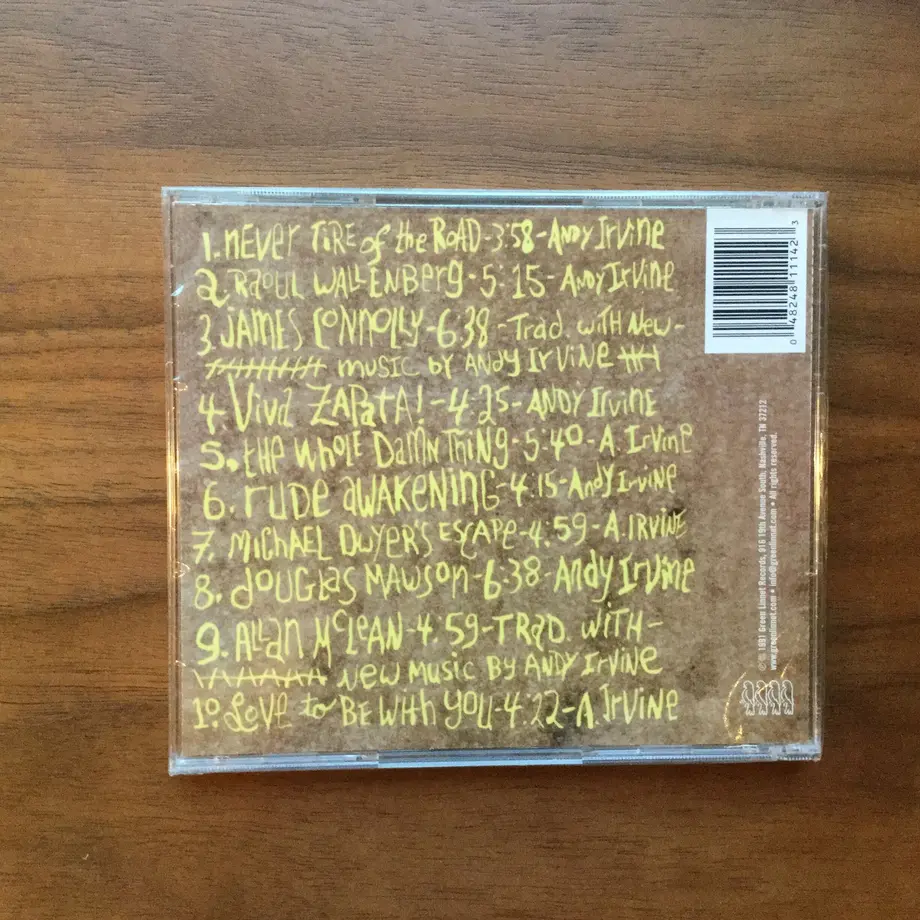 1. NEVER TIRE of the ROAD-3:58-ANDY IRVINE
2. RAOUL WALLENBERG-5:15-ANDY IRVINE
3. JAMES CONNOLLY-6:38-TRAD. WITH NEW-
MUSIC BY ANDY IRVINE
4. VIVA ZAPATA!-4:25-ANDY IRVINE
5. the WHOLE DAMN THING-5:40-A. IRVINE
6. RUDE AWAKENING-4:15-ANDY IRVINE
7. MICHAEL DWYER'S ESCAPE-4:59-A. IRVINE
8. DOUGLAS MAWSON-6:38-ANDY IRVINE
9. ALLAN McLEAN-4.59-TRAD. WITH-
NEW MUSIC BY ANDY IRVINE
10. LOVE to BE WITH YOU-4:22-A IRVINE
0 48248 11142 3
℗ © 1991 Green Linnet Records, 916 19th Avenue South, Nashville, TN 37212
www.greenlinnet.com • info@greenlinnet.com • All rights reserved.